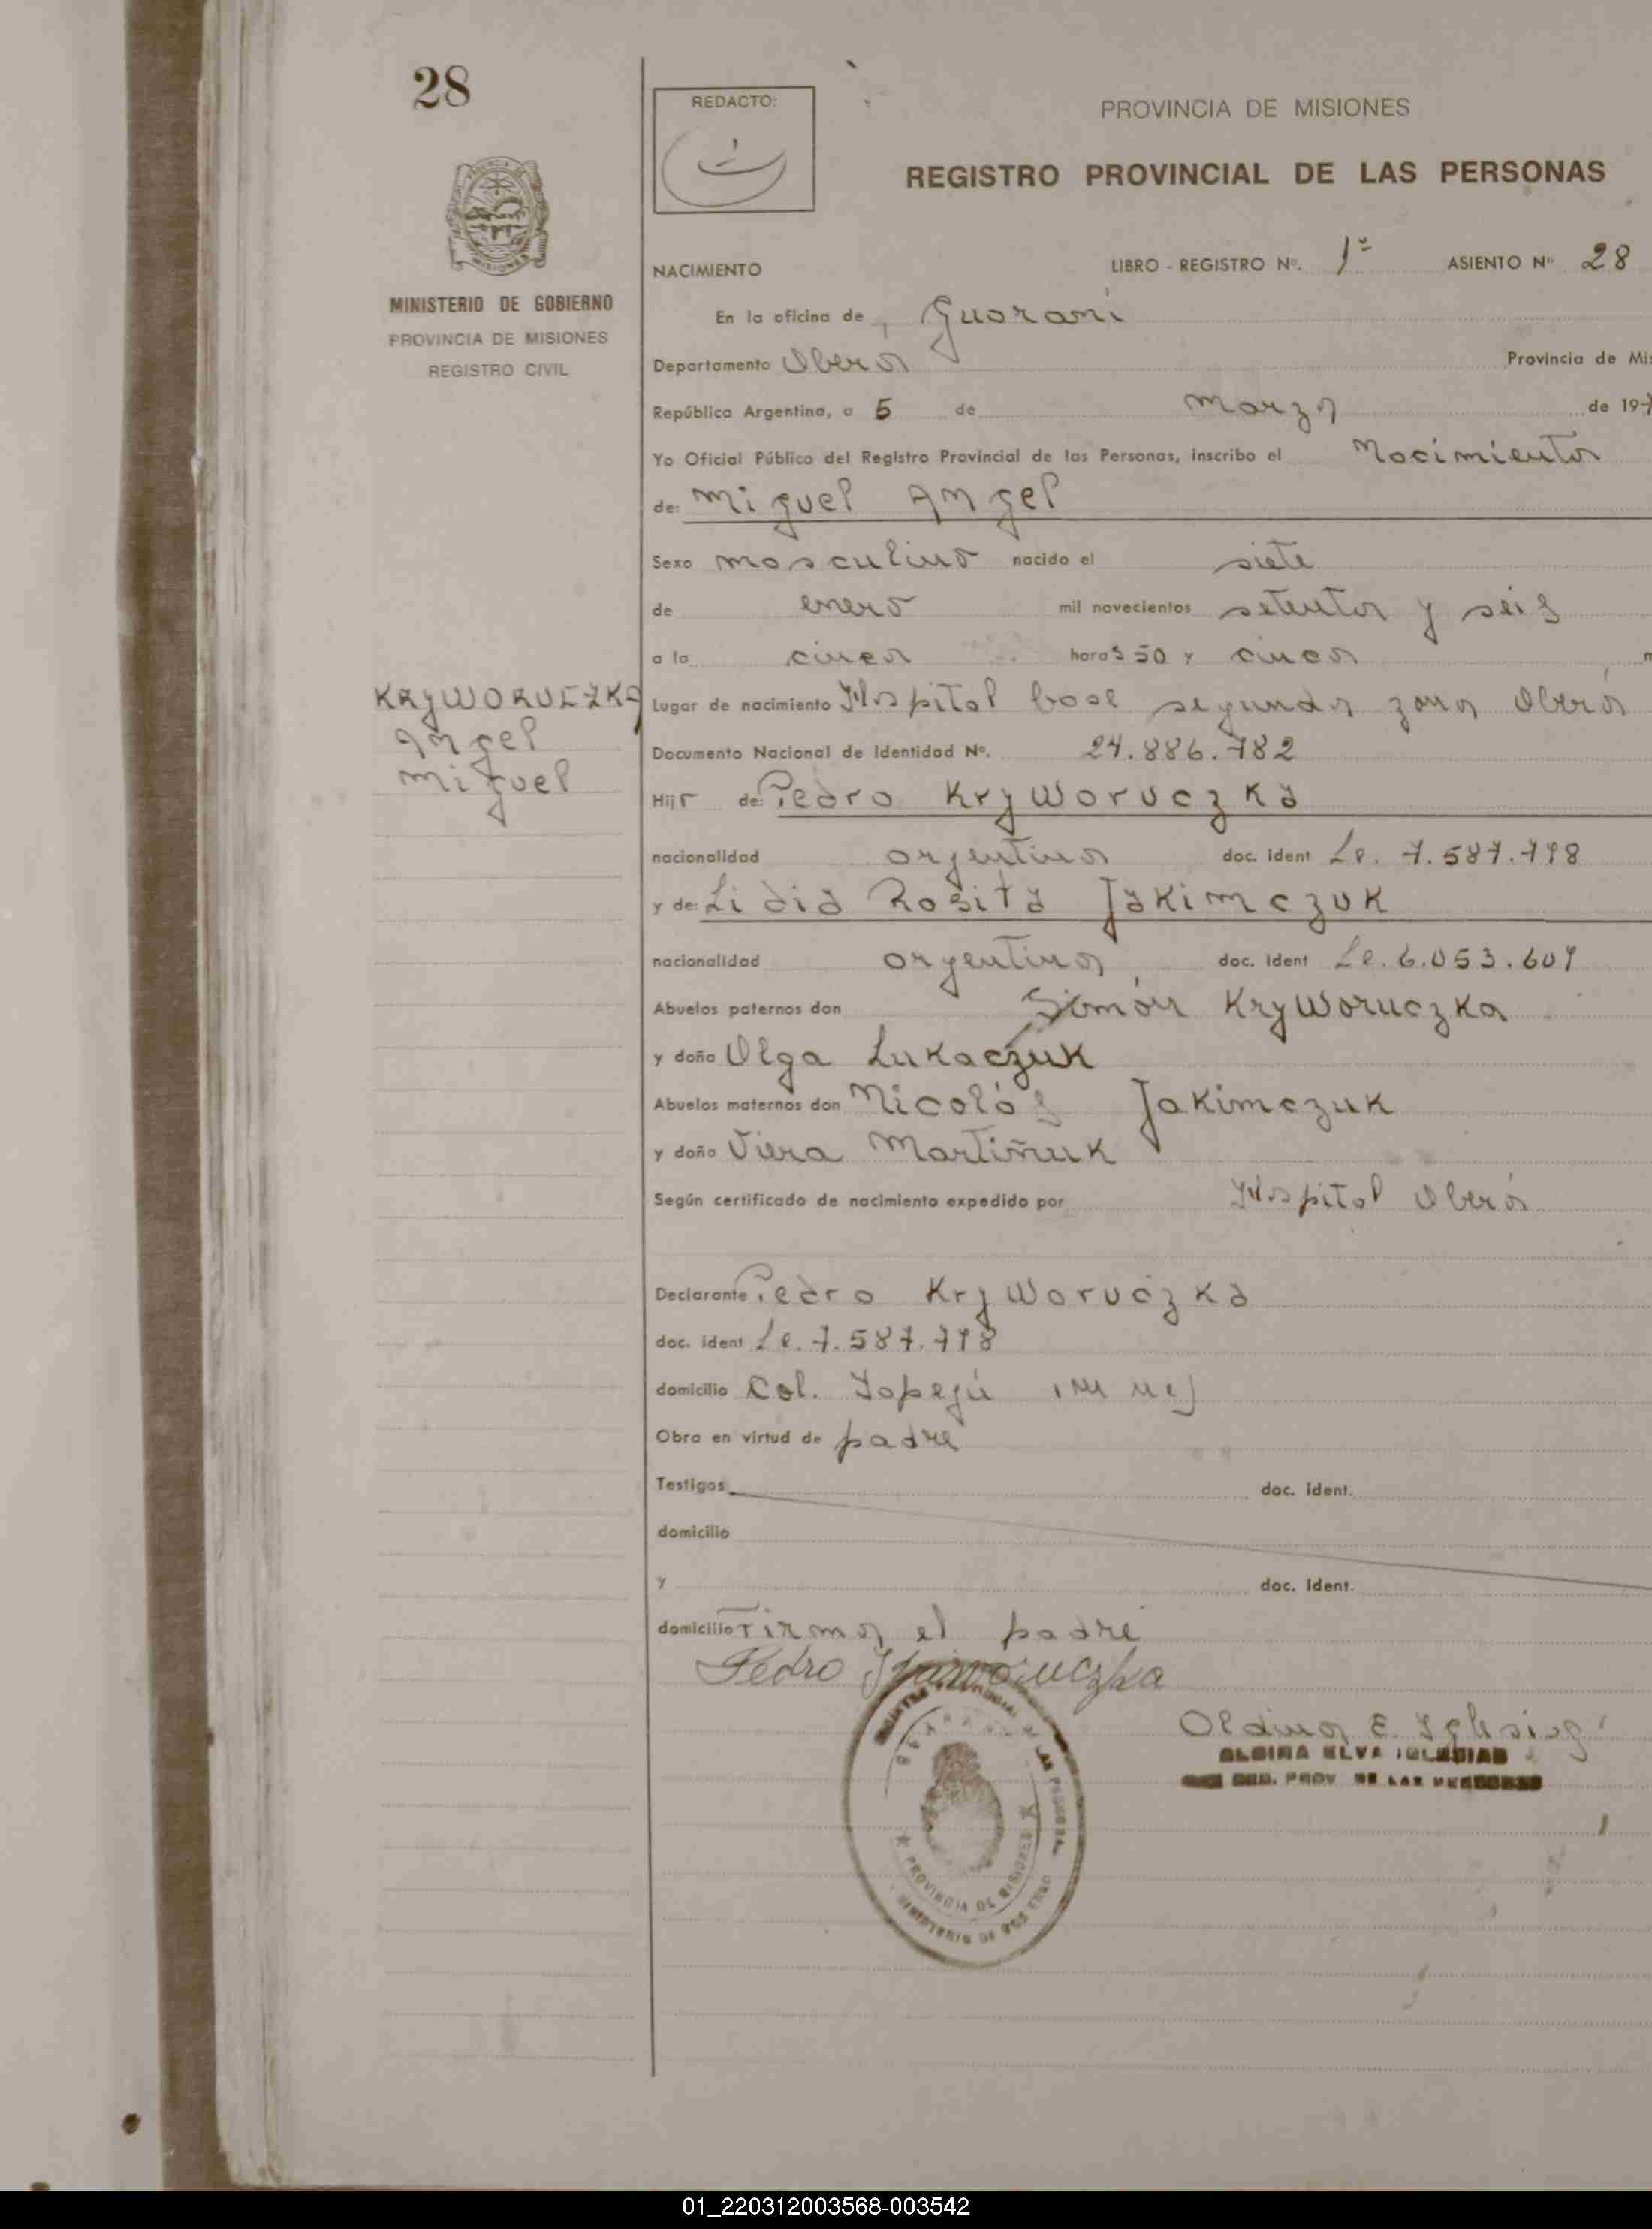 28
REDACTO:
PROVINCIA DE MISIONES
REGISTRO PROVINCIAL DE LAS PERSONAS
MINISTERIO DE GOBIERNO
PROVINCIA DE MISIONES
REGISTRO CIVIL
NACIMIENTO LIBRO - REGISTRO Nº. 1º ASIENTO Nº 28
En la oficina de Guarani
Departamento Oberá Provincia de Mis
República Argentina, a 5 de marzo de 197
Yo Oficial Público del Registro Provincial de las Personas, inscribo el Nacimiento
de: Miguel Angel
Sexo masculino nacido el siete
de enero mil novecientos setenta y seis
a la cinco horas 50 y cinco m
KRYWORUCZKA
Angel
Miguel
Lugar de nacimiento Hospital base segunda zona Oberá
Documento Nacional de Identidad Nº. 24.886.782
Hijo de: Pedro KryWoruczka
nacionalidad argentina doc. ident Le. 7.587.798
y de: Lidia Rosita Jakimczuk
nacionalidad argentina doc. ident Le. 6.053.609
Abuelos paternos don Simón KryWoruczka
y doña Olga Lukaczuk
Abuelos maternos don Nicolás Jakimczuk
y doña Viera Martiñuk
Según certificado de nacimiento expedido por Hospital Oberá
Declarante Pedro KryWoruczka
doc. ident Le. 7.587.798
domicilio Col. Yapeyú
Obra en virtud de padre
Testigos doc. ident.
domicilio
y doc. ident.
domicilio Firma el padre
Pedro Kryworuczka
Aldina E. Iglesias
ALDINA ELVA IGLESIAS
REG. PROV. DE LAS PERSONAS
PROVINCIA DE MISIONES
MINISTERIO DE GOBIERNO
01_220312003568-003542